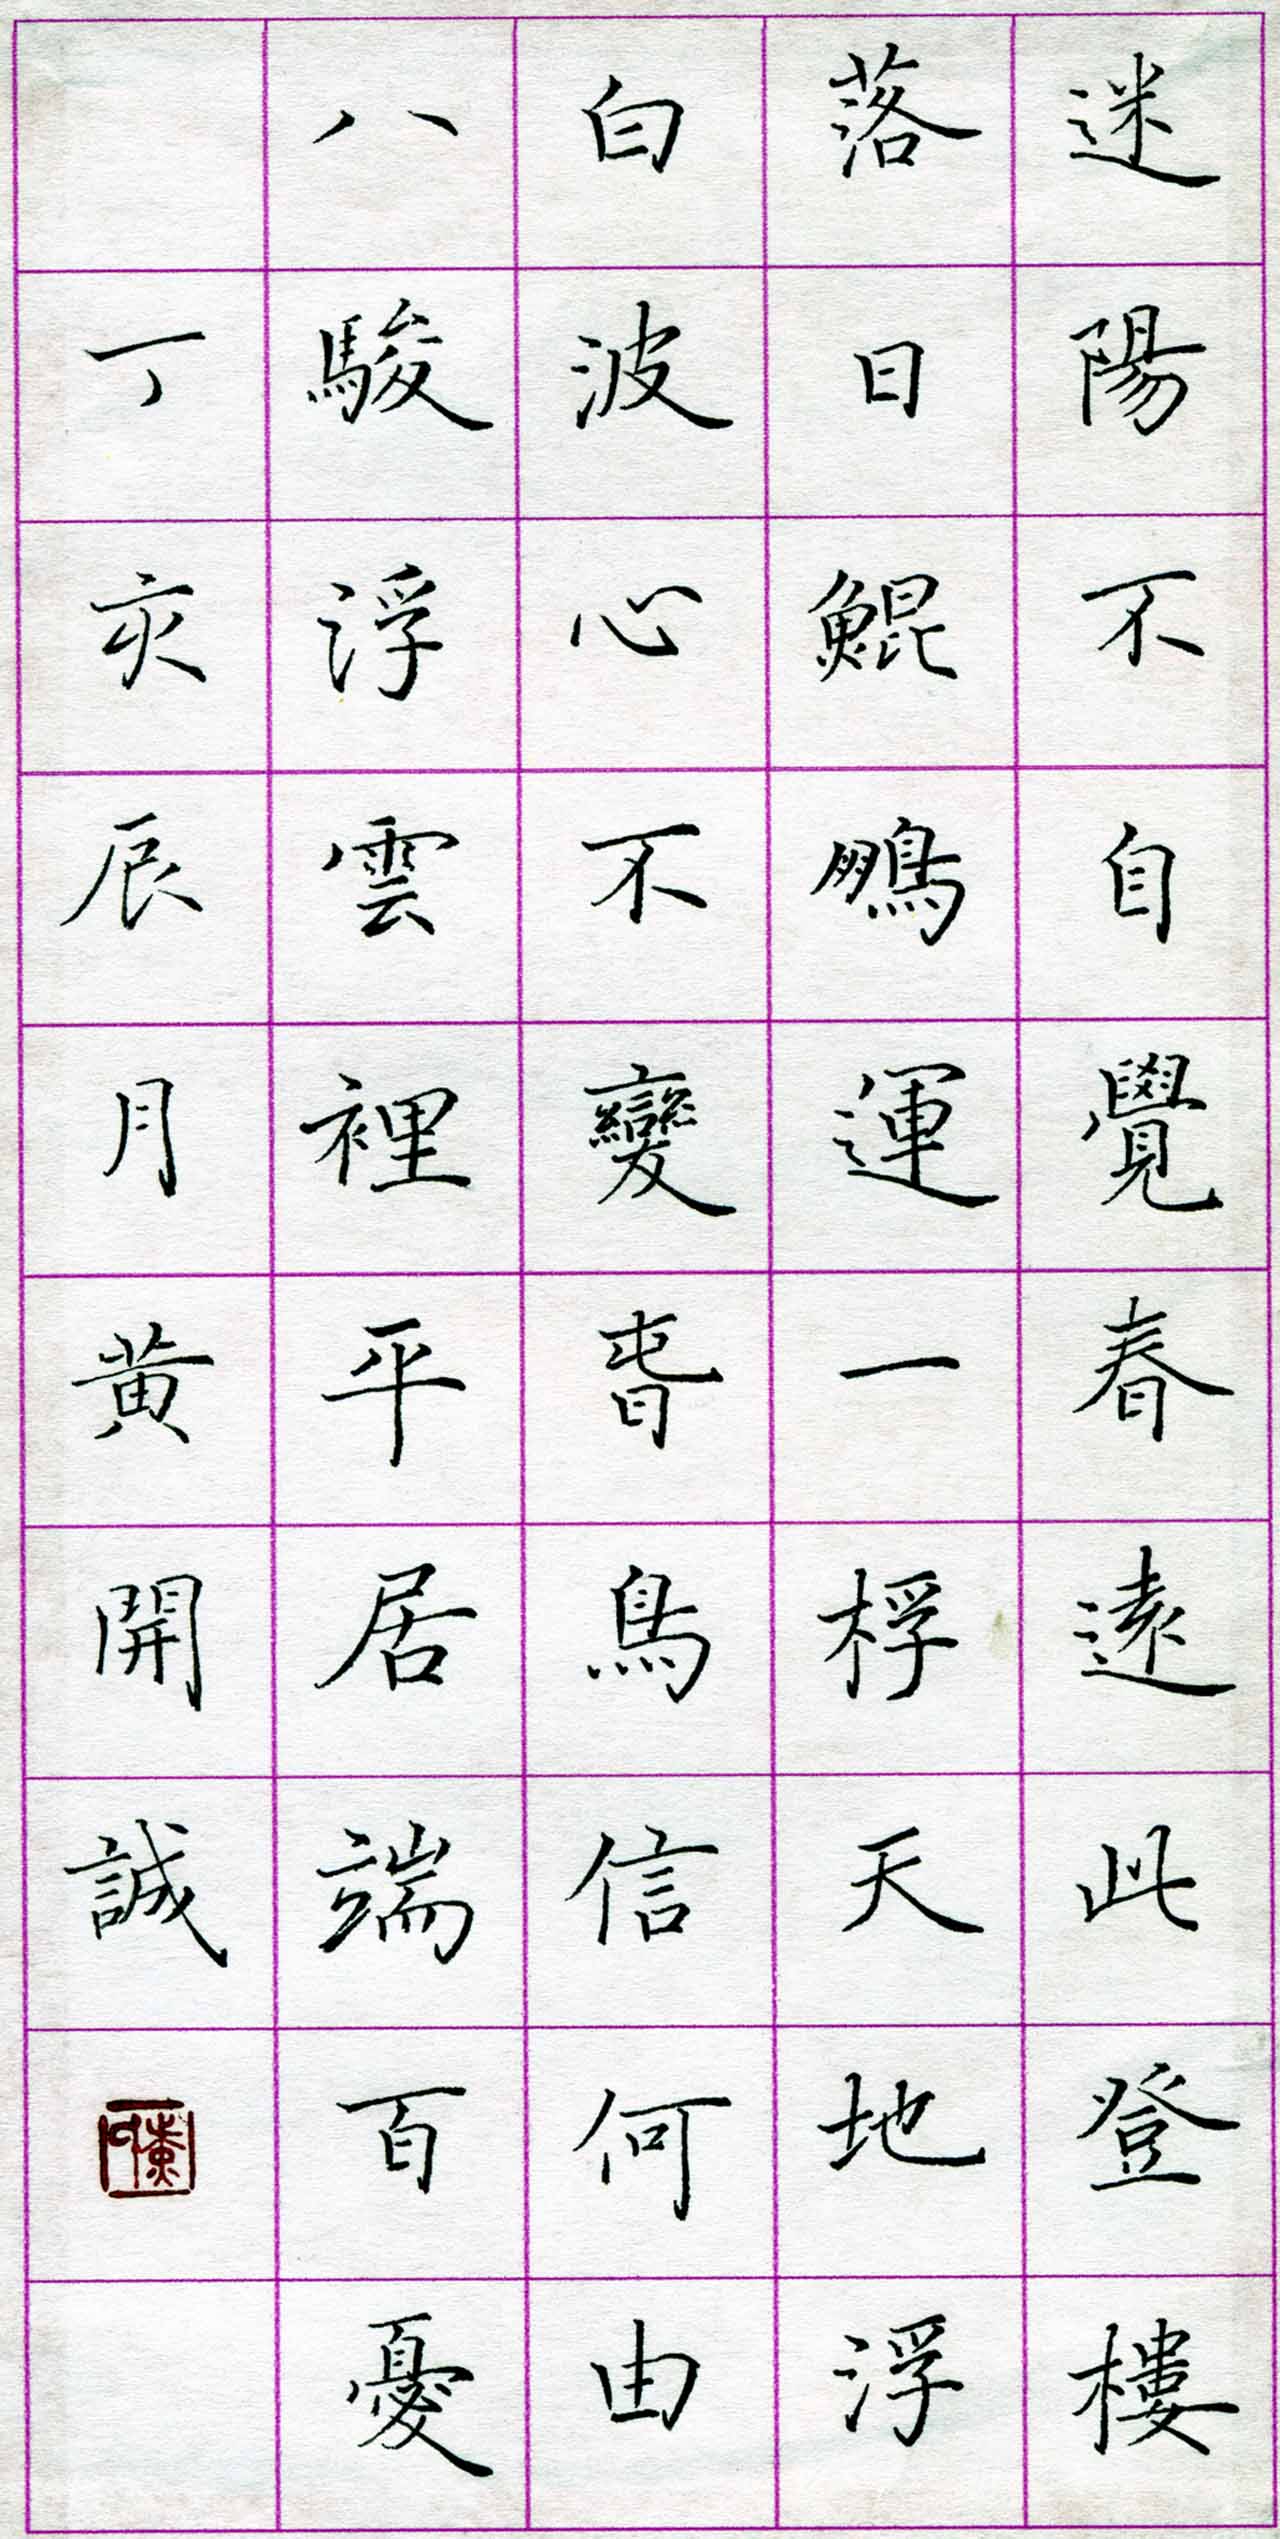 迷陽不自覺春遠此登樓
落日鯤鵬運一桴天地浮
白波心不變旾鳥信何由
八駿浮雲裡平居端百憂
丁亥辰月黃開誠